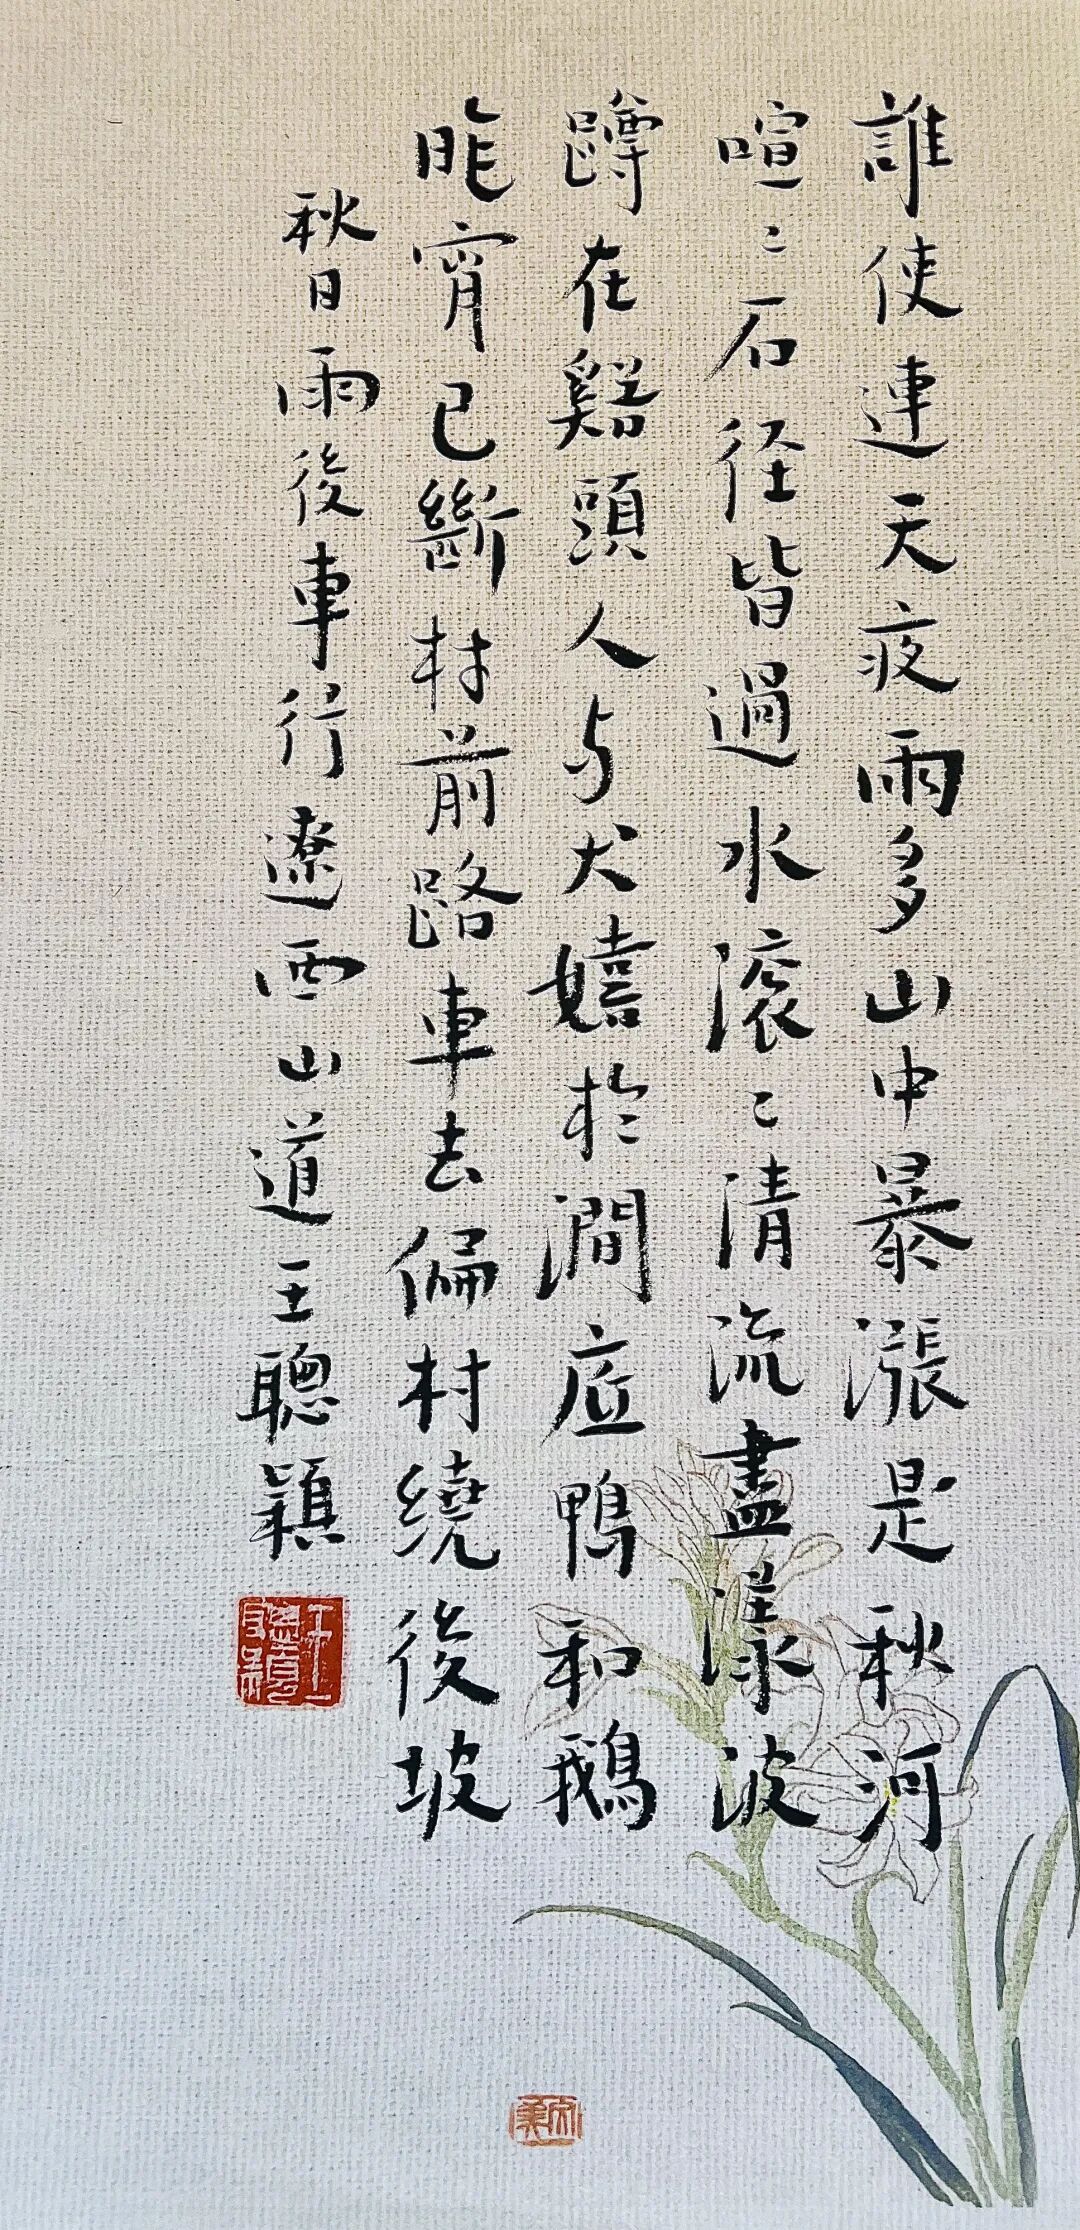 誰使連天夜雨多山中暴漲是秋河
喧〻石径皆過水滚〻清流盡漾波
蹲在谿頭人与犬嬉於澗底鴨和鵝
昨宵已斷村前路車去偏村繞後坡
秋日雨後車行遼西山道王聰穎